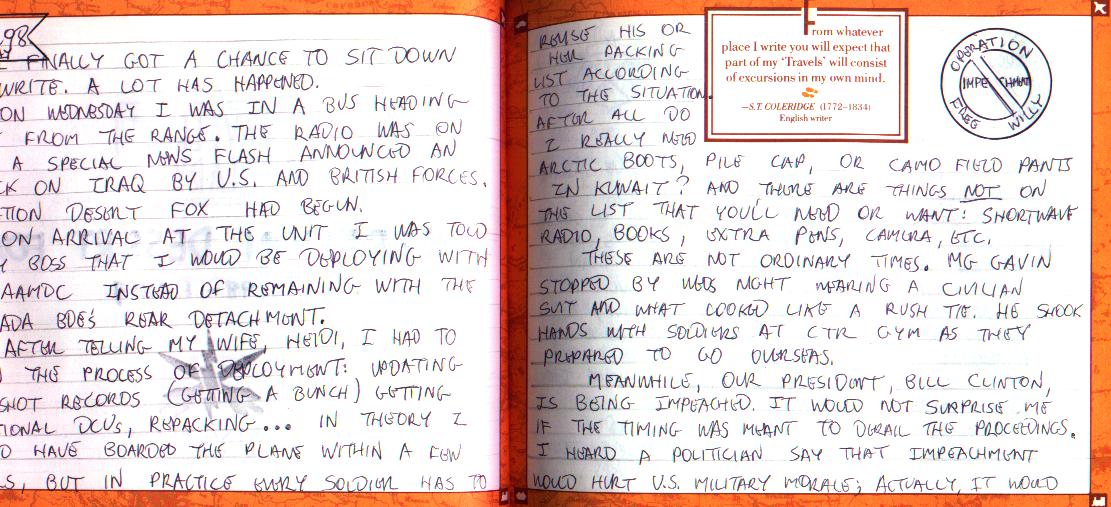 98
FINALLY GOT A CHANCE TO SIT DOWN
WRITE. A LOT HAS HAPPENED.
ON WEDNESDAY I WAS IN A BUS HEADING
FROM THE RANGE. THE RADIO WAS ON
A SPECIAL NEWS FLASH ANNOUNCED AN
CK ON IRAQ BY U.S. AND BRITISH FORCES.
TION DESERT FOX HAD BEGUN.
ON ARRIVAL AT THE UNIT I WAS TOLD
Y BOSS THAT I WOULD BE DEPLOYING WITH
AAMDC INSTEAD OF REMAINING WITH THE
ADA BDE'S REAR DETACHMENT.
AFTER TELLING MY WIFE, HEIDI, I HAD TO
THE PROCESS OF DEPLOYMENT: UPDATING
SHOT RECORDS (GETTING A BUNCH) GETTING
TIONAL DCU'S, REPACKING... IN THEORY I
D HAVE BOARDED THE PLANE WITHIN A FEW
S, BUT IN PRACTICE EVERY SOLDIER HAS TO
REVISE HIS OR
HER PACKING
LIST ACCORDING
TO THE SITUATION.
AFTER ALL DO
I REALLY NEED
ARCTIC BOOTS, PILE CAP, OR CAMO FIELD PANTS
IN KUWAIT? AND THERE ARE THINGS NOT ON
THE LIST THAT YOU'LL NEED OR WANT: SHORTWAVE
RADIO, BOOKS, EXTRA PENS, CAMERA, ETC.
THESE ARE NOT ORDINARY TIMES. MG GAVIN
STOPPED BY WEDS NIGHT WEARING A CIVILIAN
SUIT AND WHAT LOOKED LIKE A RUSH TIE. HE SHOOK
HANDS WITH SOLDIERS AT CTR GYM AS THEY
PREPARED TO GO OVERSEAS.
MEANWHILE, OUR PRESIDENT, BILL CLINTON,
IS BEING IMPEACHED. IT WOULD NOT SURPRISE ME
IF THE TIMING WAS MEANT TO DERAIL THE PROCEEDINGS.
I HEARD A POLITICIAN SAY THAT IMPEACHMENT
WOULD HURT U.S. MILITARY MORALE; ACTUALLY, IT WOULD
From whatever
place I write you will expect that
part of my 'Travels' will consist
of excursions in my own mind.
—S.T. COLERIDGE (1772–1834)
English writer
OPERATION
IMPEACHMENT
FREE WILLY